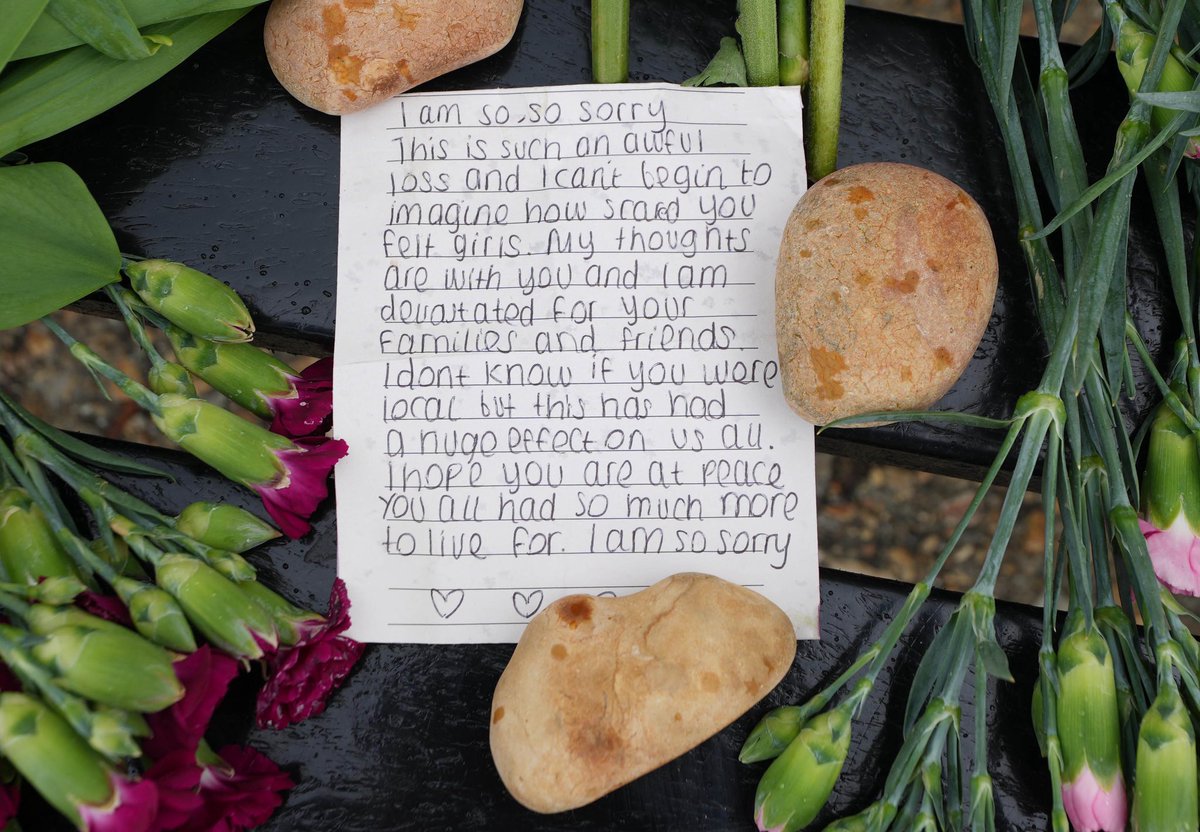 I am so, so sorry
This is such an awful
loss and I can't begin to
imagine how scared you
felt girls. My thoughts
are with you and I am
devastated for your
families and friends
I dont know if you were
local but this has had
a huge effect on us all.
I hope you are at peace
You all had so much more
to live for. I am so sorry